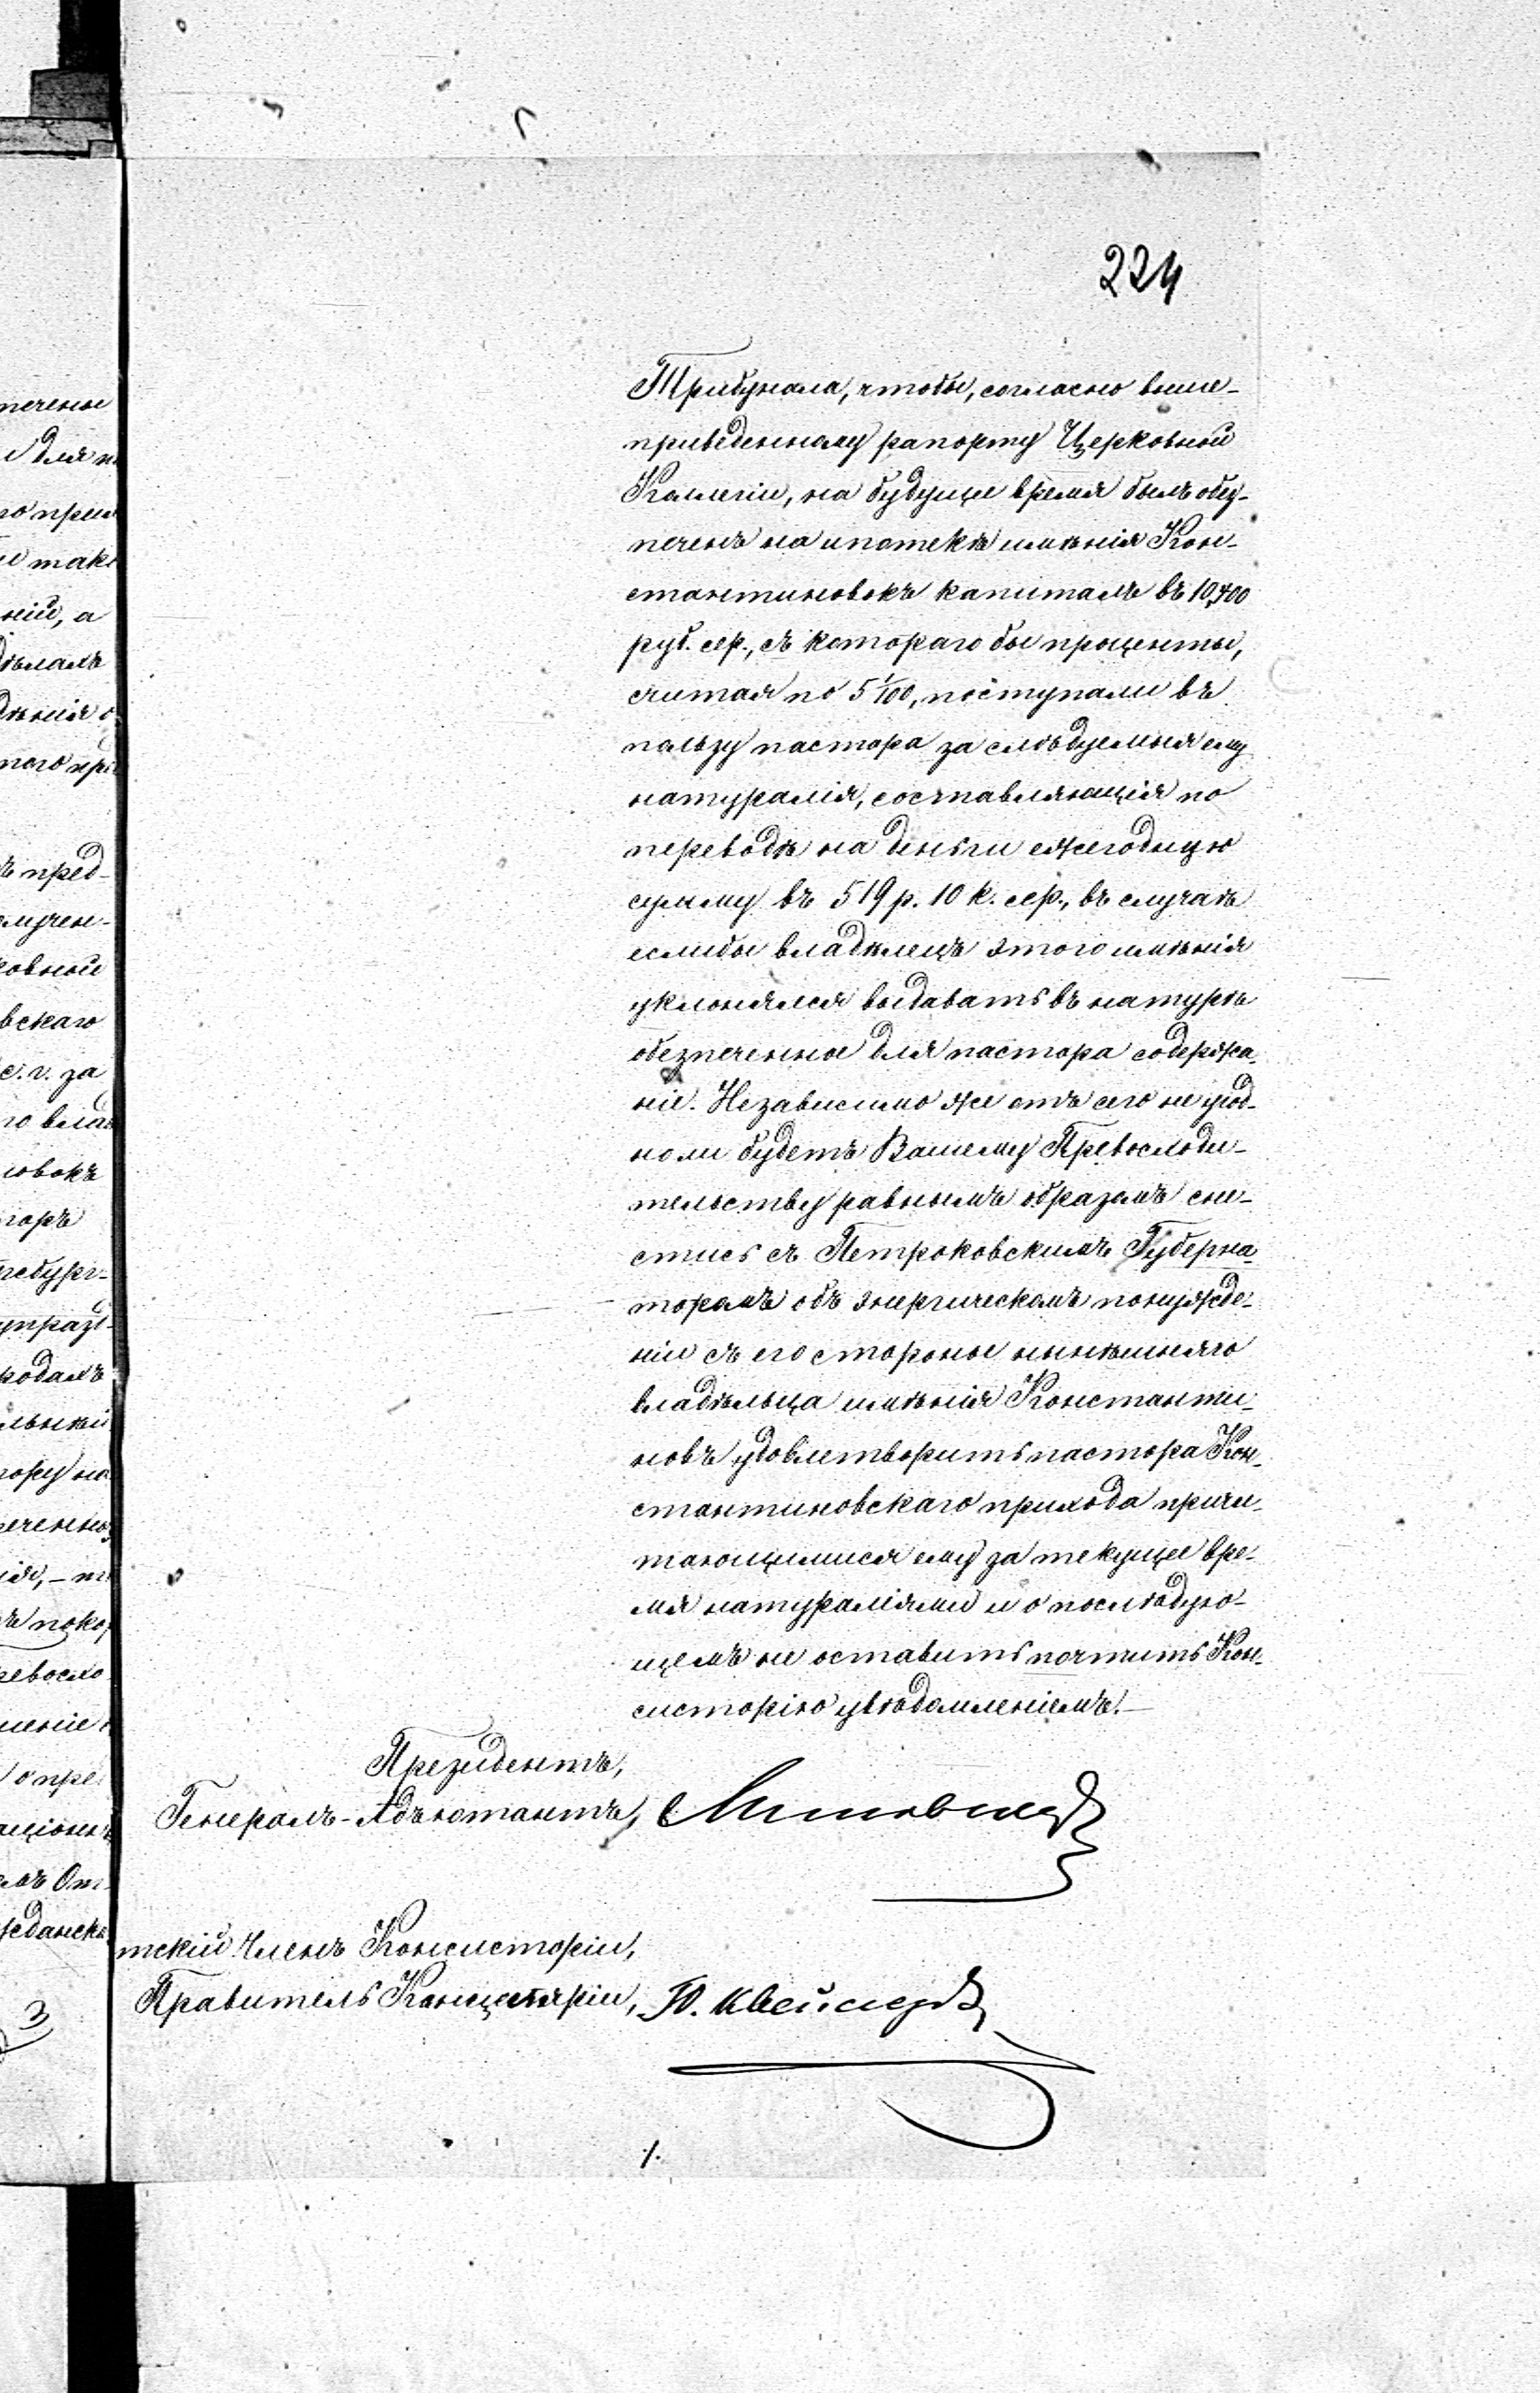 224
Трибунала, чтобы, согласно выше-
приведенному рапорту Церковной
Коллегіи, на будущее время былъ обез-
печенъ на ипотекѣ имѣнія Кон-
стантиновокъ капиталъ въ 10,400
руб. сер., съ котораго бы проценты,
считая по 5 1/100, поступали въ
пользу пастора за слѣдуемыя ему
натуралія, составляющія по
переводѣ на деньги ежегодную
сумму въ 519 р. 10 к. сер., въ случаѣ
еслибы владѣлецъ этого имѣнія
уклонялся выдавать въ натурѣ
обезпеченное для пастора содержа-
ніе. Независимо же отъ сего не угод-
но ли будетъ Вашему Превосходи-
тельству равнымъ образомъ сне-
стись съ Петроковскимъ Губерна-
торомъ объ энергическомъ понужде-
ніи съ его стороны нынѣшняго
владѣльца имѣнія Константи-
новъ удовлетворить пастора Кон-
стантиновскаго прихода причи-
тающимися ему за текущее вре-
мя натураліями и о послѣдую-
щемъ не оставить почтить Кон-
систорію увѣдомленіемъ.—
Президентъ,
Генералъ-Адъютантъ,
тскій Членъ Консисторіи,
Правитель Канцеляріи, Ю.
печенные
для
го
таки
ній, а
дѣламъ
ъ пред-
лучен-
ковной
вскаго
с. г. за
новокъ
торъ
ребург-
родамъ
3